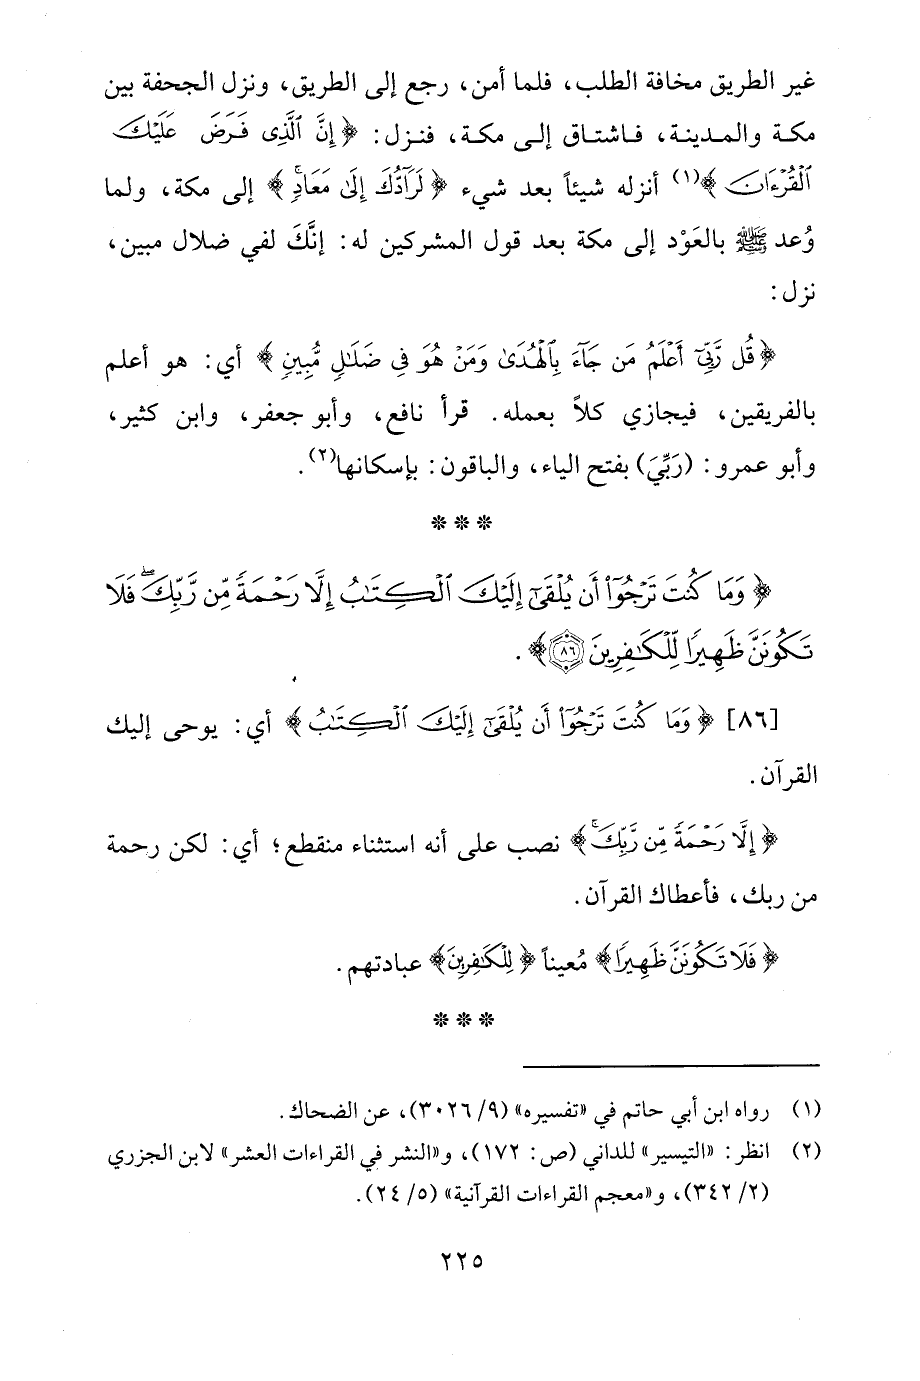 غير الطريق مخافة الطلب، فلما أمن، رجع إلى الطريق، ونزل الجحفة بين
مكة والمدينة، فاشتاق إلى مكة، فنزل: ﴿إِنَّ ٱلَّذِى فَرَضَ عَلَيْكَ
ٱلْقُرْءَانَ﴾(١) أنزله شيئاً بعد شيء ﴿لَرَآدُّكَ إِلَىٰ مَعَادٍۚ﴾ إلى مكة، ولما
وُعد ﷺ بالعَوْد إلى مكة بعد قول المشركين له: إنَّكَ لفي ضلال مبين،
نزل:
﴿قُل رَّبِّىٓ أَعْلَمُ مَن جَآءَ بِٱلْهُدَىٰ وَمَنْ هُوَ فِى ضَلَٰلٍ مُّبِينٍ﴾ أي: هو أعلم
بالفريقين، فيجازي كلاً بعمله. قرأ نافع، وأبو جعفر، وابن كثير،
وأبو عمرو: (رَبِّيَ) بفتح الياء، والباقون: بإسكانها(٢).
* * *
﴿وَمَا كُنتَ تَرْجُوٓا۟ أَن يُلْقَىٰٓ إِلَيْكَ ٱلْكِتَٰبُ إِلَّا رَحْمَةً مِّن رَّبِّكَۖ فَلَا
تَكُونَنَّ ظَهِيرًا لِّلْكَٰفِرِينَ ٨٦﴾.
[٨٦] ﴿وَمَا كُنتَ تَرْجُوٓا۟ أَن يُلْقَىٰٓ إِلَيْكَ ٱلْكِتَٰبُ﴾ أي: يوحى إليك
القرآن.
﴿إِلَّا رَحْمَةً مِّن رَّبِّكَۚ﴾ نصب على أنه استثناء منقطع؛ أي: لكن رحمة
من ربك، فأعطاك القرآن.
﴿فَلَا تَكُونَنَّ ظَهِيرًا﴾ مُعيناً ﴿لِّلْكَٰفِرِينَ﴾ عبادتهم.
* * *
(١) رواه ابن أبي حاتم في «تفسيره» (٩/ ٣٠٢٦)، عن الضحاك.
(٢) انظر: «التيسير» للداني (ص: ١٧٢)، و«النشر في القراءات العشر» لابن الجزري
(٢/ ٣٤٢)، و«معجم القراءات القرآنية» (٥/ ٢٤).
٢٢٥